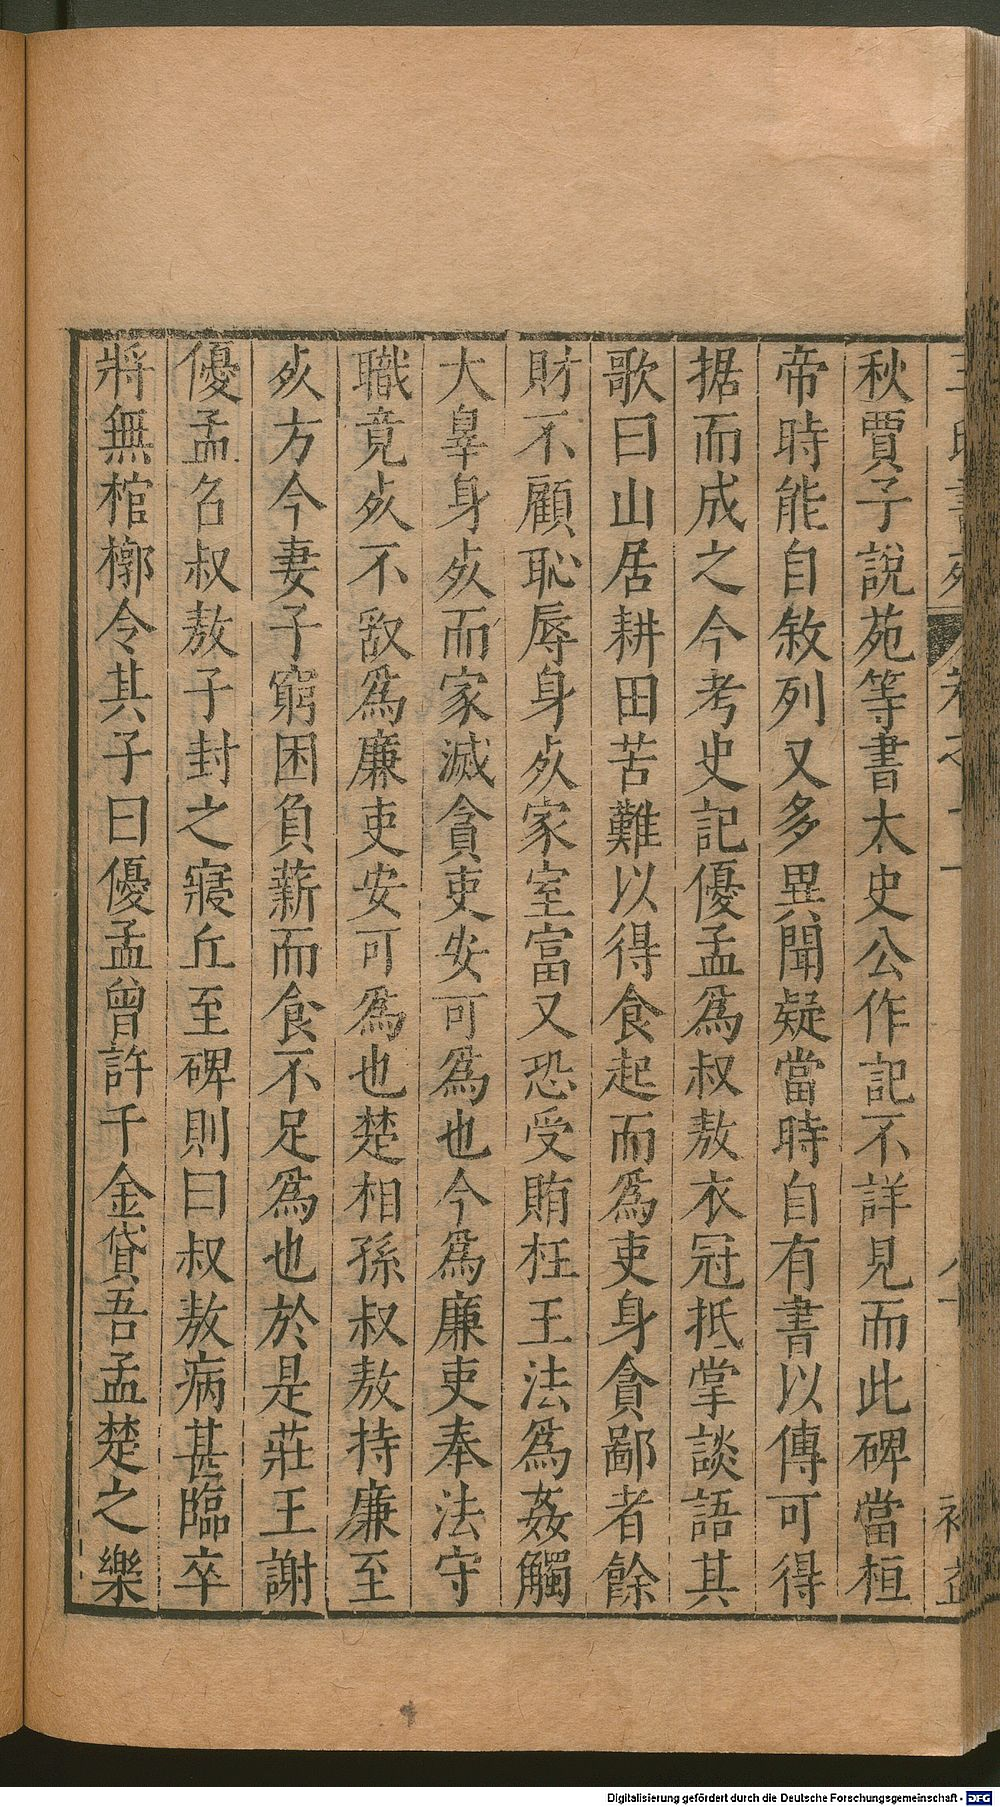 秋賈子說苑等書太史公作記不詳見而此碑當桓
帝時能自敘列又多異聞疑當時自有書以傳可得
据而成之今考史記優孟爲叔敖衣冠抵掌談語其
歌曰山居耕田苦難以得食起而爲吏身貪鄙者餘
財不顧恥辱身歿家室富又恐受賄枉王法爲姦觸
大辠身歿而家滅貪吏安可爲也今爲廉吏奉法守
職竟歿不敢爲廉吏安可爲也楚相孫叔敖持廉至
歿方今妻子窮困負薪而食不足爲也於是莊王謝
優孟名叔敖子封之寢丘至碑則曰叔敖病甚臨卒
將無棺槨令其子曰優孟曾許千金貸吾孟楚之樂
Digitalisierung gefördert durch die Deutsche Forschungsgemeinschaft - DFG